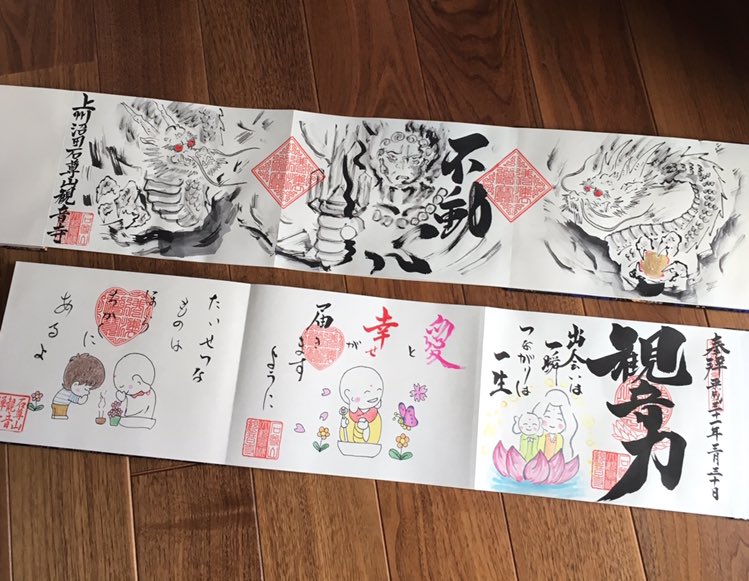 不動
上州沼田石尊山観音寺
奉拝 平成三十一年三月三十日
観音力
出会いは
一瞬
つながりは
一生
愛と
幸せが
届き
ます
ように
たいせつな
ものは
ほら
ちかく
に
あるよ
石尊山
観音